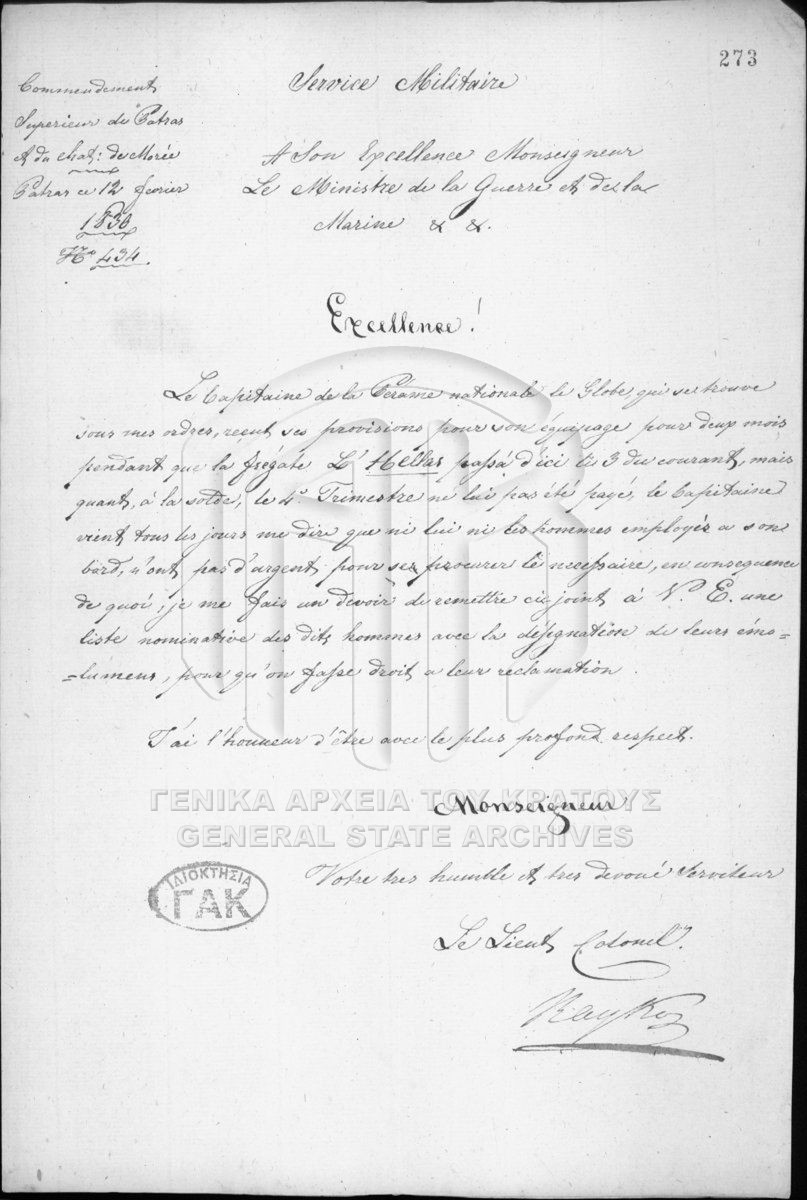 273
Commendement
Superieur de Patras
et du chat: de Morée
Patras ce 12 fevrier
1830
No 434.
Service Militaire
A Son Excellence Monseigneur
Le Ministre de la Guerre et de la
Marine & &.
Excellence!
Le Capitaine de la Perame nationale le Globe, qui se trouve
sous mes ordres, reçut ses provisions pour son équipage pour deux mois
pendant que la frégate L'Hellas passá d'ici le 3 du courant, mais
quant, à la solde, le 4e Trimestre ne lui pas été payé, le Capitaine
vient tous les jours me dire que ni lui ni les hommes employés a son
bord, n'ont pas d'argent pour se procurer le necessaire, en consequence
de quoi, je me fais un devoir de remettre ci-joint à V. E. une
liste nominative des dits hommes avec la désignation de leurs émo-
-lumens, pour qu'on fasse droit a leur reclamation.
J'ai l'honneur d'être avec le plus profond respect.
Monseigneur
ΓΕΝΙΚΑ ΑΡΧΕΙΑ ΤΟΥ ΚΡΑΤΟΥΣ
GENERAL STATE ARCHIVES
Votre tres humble et tres devoué Serviteur
ΙΔΙΟΚΤΗΣΙΑ
ΓΑΚ
Le Lieut Colonel.
Rayko